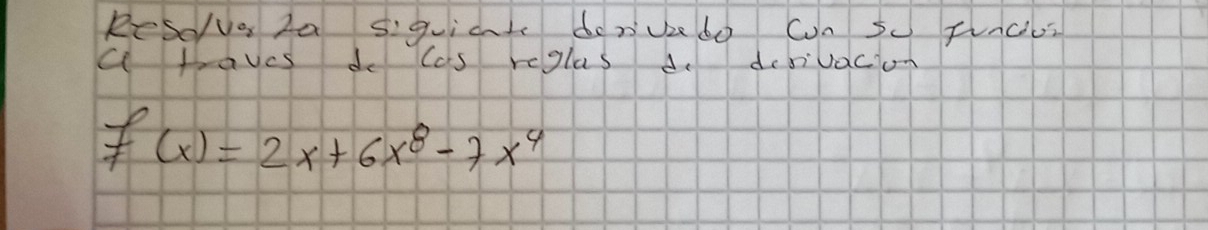 Resolver la siguiente derivado con su función
a traves de las reglas de derivacion
f(x) = 2x + 6x⁸ - 7x⁴